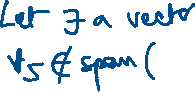 Let ∃ a vector
v₅ ∉ span (